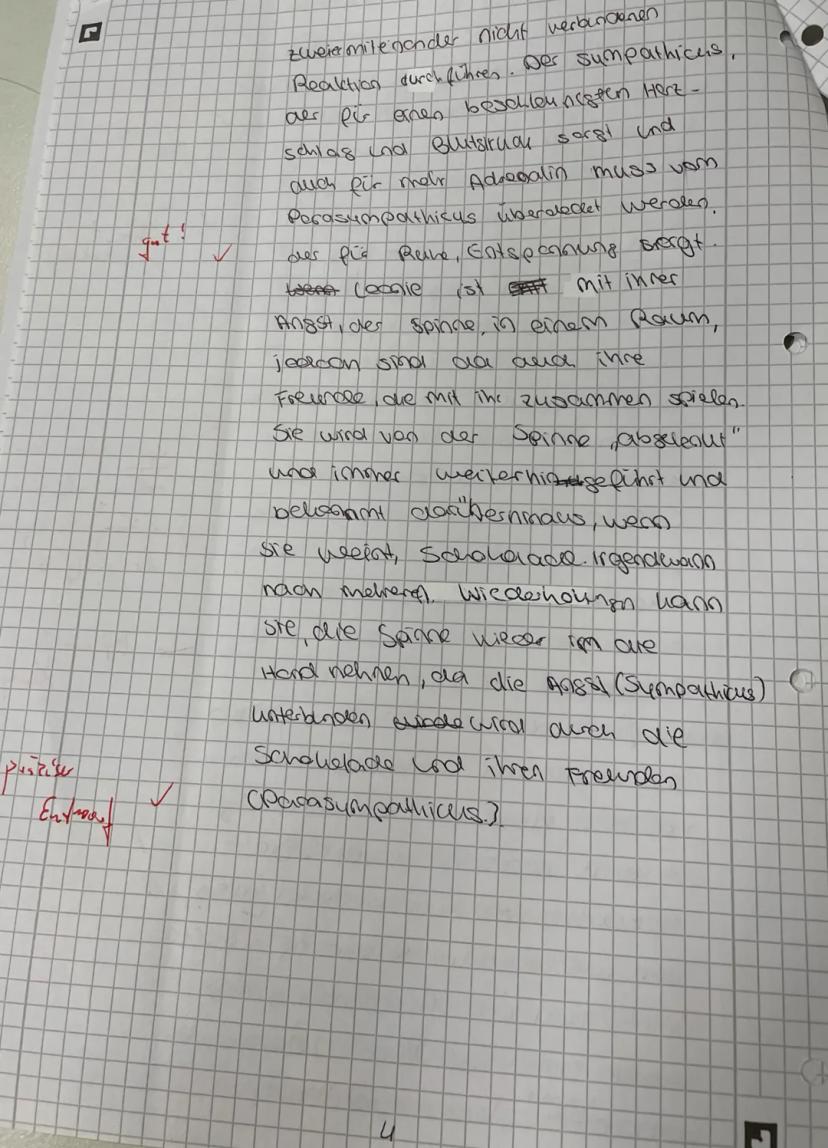 zweiermiteinander nicht verbundenen
Reaktion durchführen. Der Sympathicus,
der für einen beschleunigten Herz-
schlag und Blutdruck sorgt und
auch für mehr Adrenalin muss vom
Parasympathicus überdeckt werden.
gut! der für Ruhe, Entspannung sorgt.
ist mit ihrer
Angst, der Spinne, in einem Raum,
jedoch sind da auch ihre
Freunde, die mit ihr zusammen spielen.
Sie wird von der Spinne „abgelenkt"
und weiterhin geführt und
bekommt darüberhinaus, wenn
sie weint, Schokolade. Irgendwann
nach mehreren Wiederholungen kann
sie, die Spinne wieder in die
Hand nehmen, da die Angst (Sympathicus)
unterbunden wird durch die
Schokolade und ihren Freunden
präziser
Entwurf (Parasympathicus.)
4